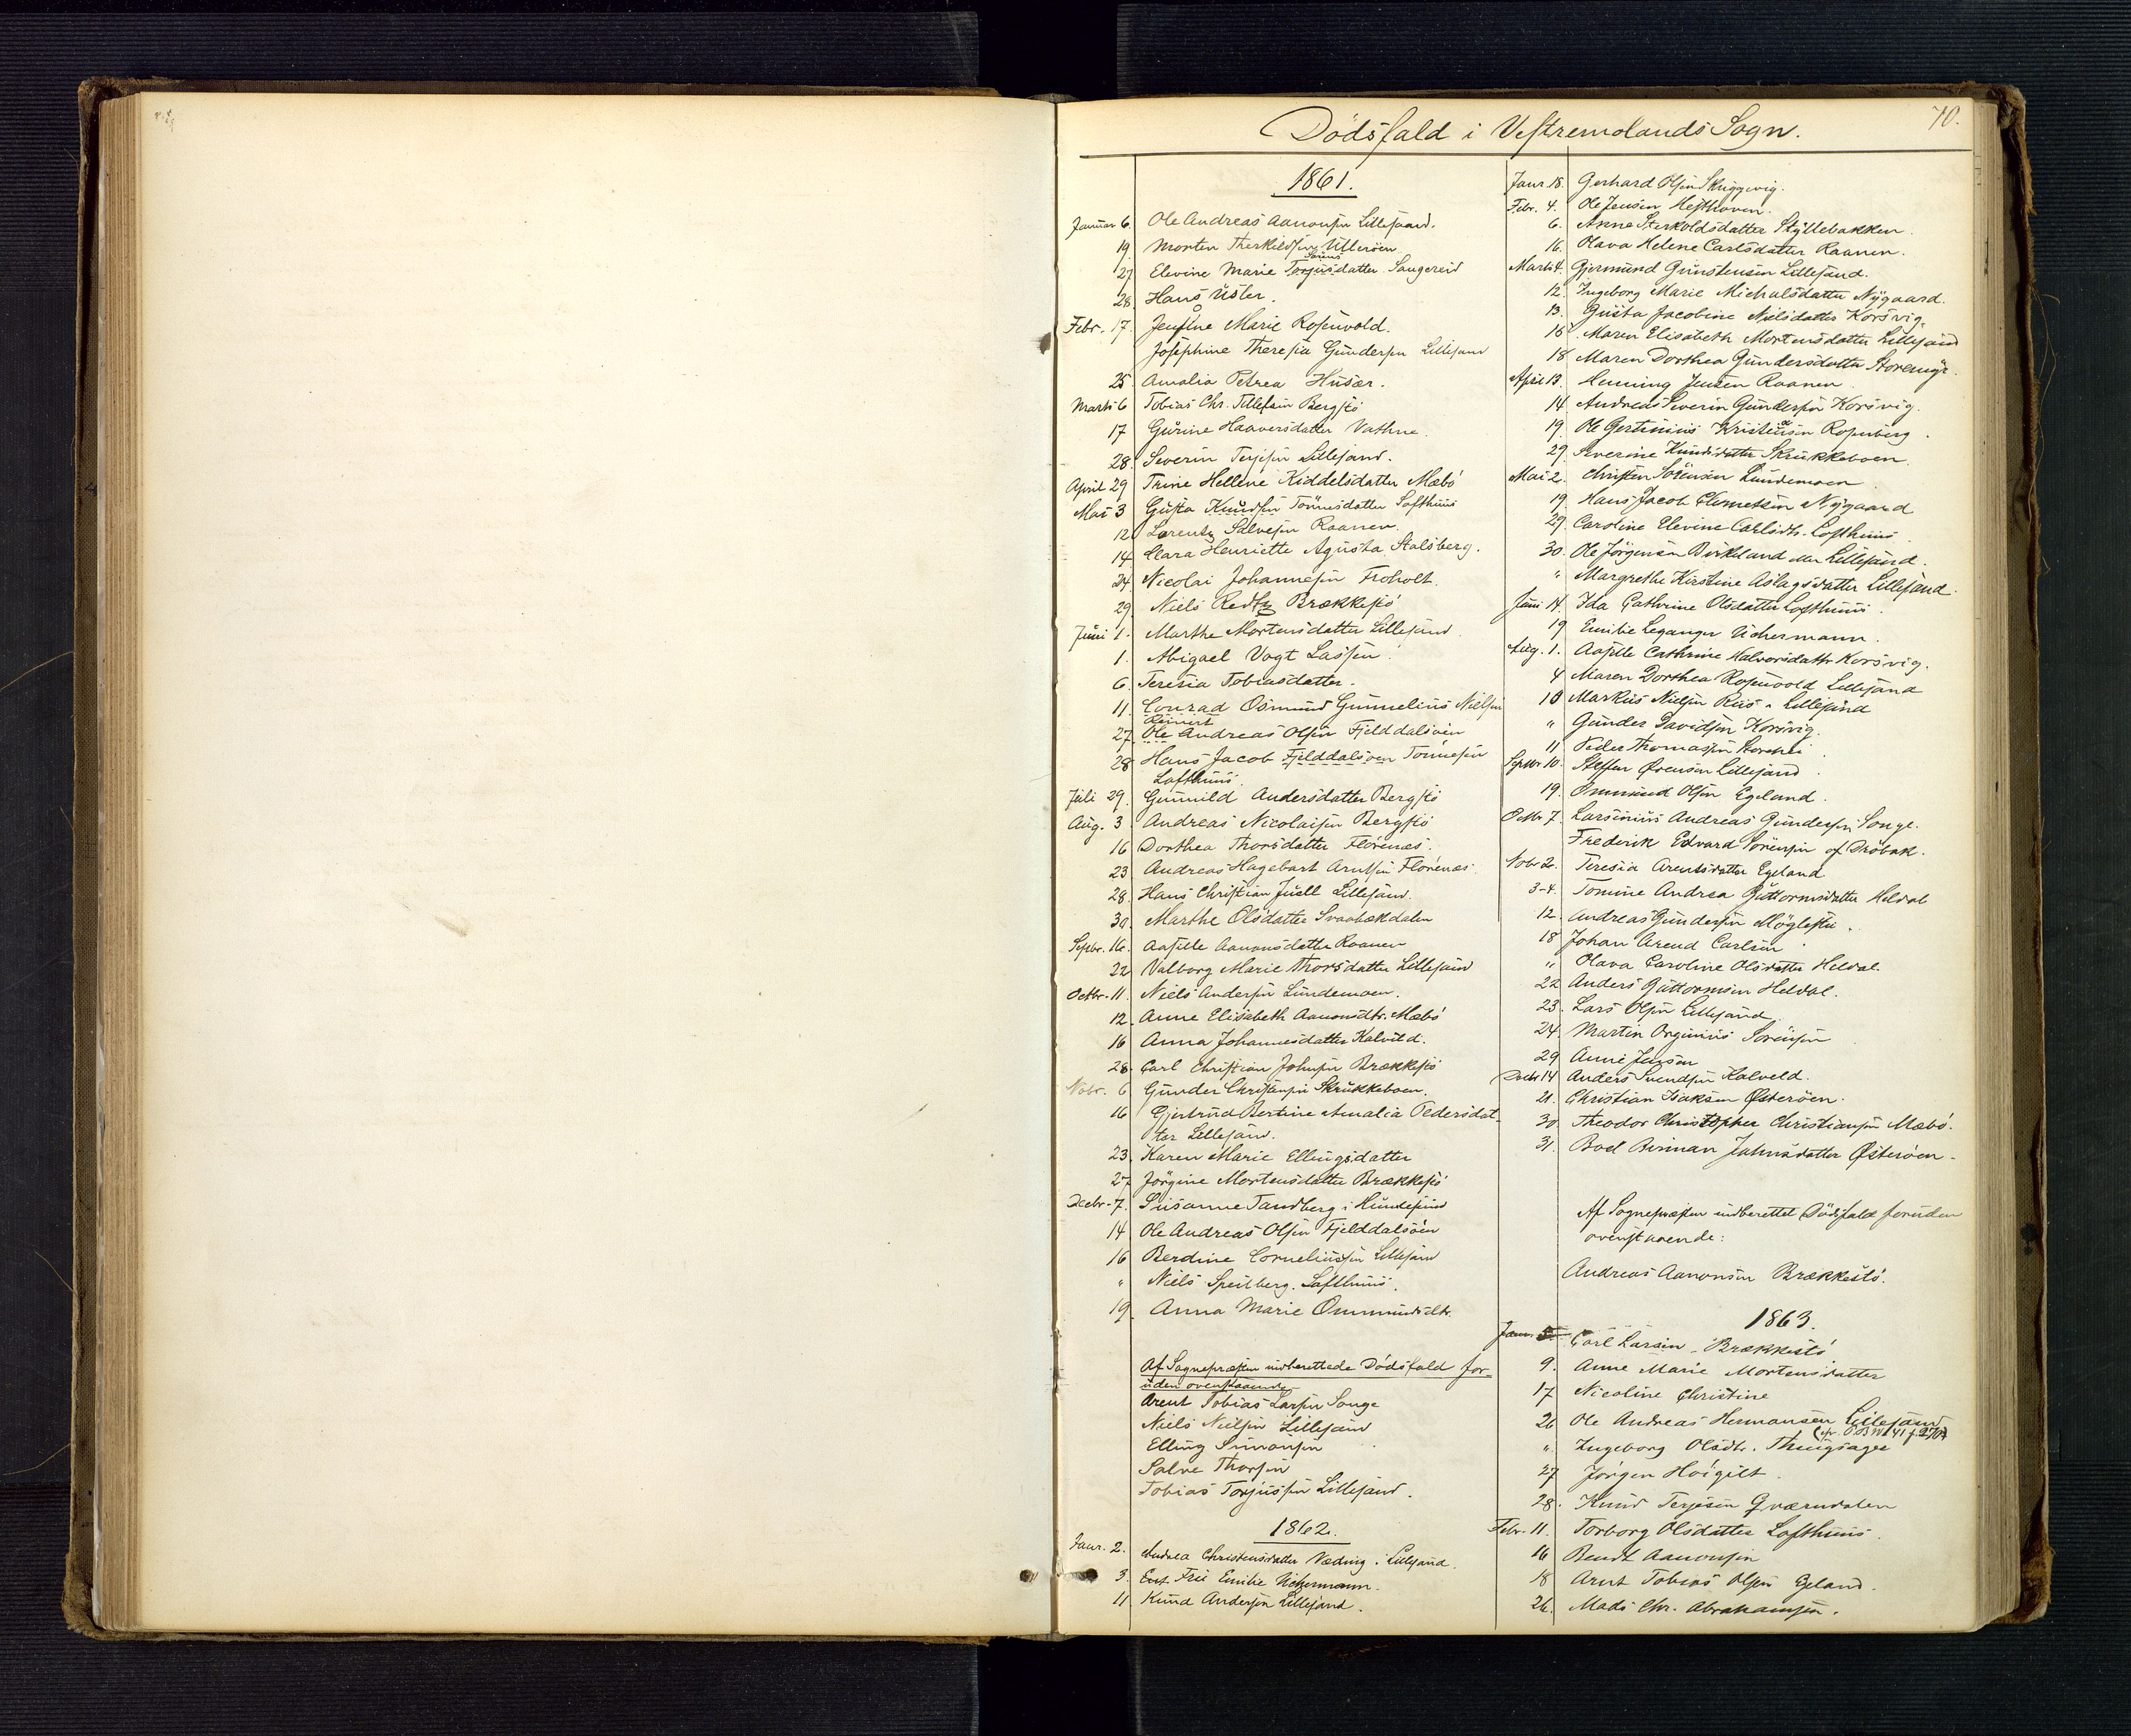 70.
Dödsfald i Vestremolands Sogn.
1861.
Januar 6. Ole Andreas Aanonsen Lillesand.
19. Morten Therkildsen Ulleröen
27 Elevine Marie Torjusdatter Saugereid
28. Hans Uster.
Febr. 17. Jensine Marie Rosenvold.
Josephine Theresia Gundersen Lillesand
25 Amalia Petrea Husær.
Marts 6 Tobias Chr. Tellefsen Bergstö
17 Gurine Haaversdatter Vathne.
28. Severin Terjesen Lillesand.
April 29 Trine Hellene Kiddelsdatter Mæbö
Mai 3 Gusta Knudsen Tönnesdatter Lofthuus
12 Lorentz Salvesen Raanen.
14 Clara Henriette Agusta Stalsberg.
24 Nicolai Johannesen Froholt.
29. Niels Redtz Brækkestö
Juni 1. Marthe Mortensdatter Lillesand.
1. Abigael Vogt Lassen.
6. Teresia Tobiasdatter.
11. Conrad Osmund Gunnelius Nielsen
Reinert
27. Ole Andreas Olsen Fjelddalsöen
28 Hans Jacob Fjelddalsöen Tönnesen
Lofthuus
Juli 29. Gunnild Andersdatter Bergstö
Aug. 3 Andreas Nicolaisen Bergstö
16 Dorthea Thorsdatter Flörenæs.
23 Andreas Hagebart Arntsen Flörenæs
28. Hans Christian Juell Lillesand.
30. Marthe Olsdatter Svaabækdalen
Septbr. 16. Aasille Aanonsdatter Raanen
22 Valborg Marie Thorsdatter Lillesand
Octbr. 11. Niels Andersen Lundemoen.
12. Anne Elisabeth Aanonsdtr. Mæbö
16 Anna Johannesdatter Kalveld.
28. Carl Christian Johnsen Brækkestö
Nobr. 6 Gunder Christensen Skrukkeboen.
16 Gjertrud Bertine Amalia Pedersdat-
ter Lillesand.
23. Karen Marie Ellingsdatter
27 Jörgine Mortensdatter Brækkestö
Decbr. 7. Susanne Tandberg i Hundesund
14 Ole Andreas Olsen Fjelddalsöen
16 Berdine Corneliussen Lillesand
" Niels Speilberg. Lofthuus.
19. Anna Marie Ommundsdtr.
Af Sognepræsten indberettede Dödsfald for-
uden ovenstaaende
Arent Tobias Larsen Songe
Niels Nielsen Lillesand
Elling Simonsen
Salve Thorsen
Tobias Torjussen Lillesand.
1862.
Janr. 2. Andrea Christensdatter Næding i Lillesand.
3. Ent. Frue Emilie Uchermann.
11 Knud Andersen Lillesand.
Janr. 18. Gerhard Olsen Skuggevig.
Febr. 4. Ole Jensen Hesthoven.
6. Anne Sterkoldsdatter Styllebakken.
16. Olava Helene Carlsdatter Raanen.
Marts 4. Gjermund Gunstensen Lillesand.
12. Ingeborg Marie Michalsdatter Nygaard.
13. Gusta Jacobine Nielsdatter Korsvig.
15. Maren Elisabeth Mortensdatter Lillesand
18 Maren Dorthea Gundersdatter Storemyr.
April 13. Henning Jensen Raanen.
14. Andreas Severin Gundersen Korsvig.
19. Ole Gertinius Kristensen Rosenberg.
29. Severine Knudsdatter Skrukkeboen.
Mai 2. Christen Sörensen Lundemoen.
19. Hans Jacob Clemetsen Nygaard
29. Caroline Elevine Carlsdtr. Lofthuus.
30. Ole Jörgensen Birkeland Lillesand.
" Margrethe Kirstine Aslagsdatter Lillesand.
Juni 14. Ida Cathrine Olsdatter Lofthuus.
19 Emilie Leganger Uchermann.
Aug. 1. Aasille Cathrine Halvorsdatter Korsvig.
4 Maren Dorthea Rosenvold Lillesand
10 Markus Nielsen Riis - Lillesand
" Gunder Davidsen Korsvig.
11 Peder Thomassen
Septbr. 10. Steffen Evensen Lillesand.
19. Ommund Olsen Egeland.
Octbr. 7. Larsinius Andreas Gundersen Songe.
Frederik Edvard Sörensen af Dröbak.
Nobr. 2. Teresia Arentsdatter Egeland
3-4. Tomine Andrea Guttormsdatter Heldal
12. Andreas Gundersen Möglestu.
18 Johan Arend Carlsen
" Olava Caroline Olsdatter Heldal.
22 Anders Guttormsen Heldal.
23. Lars Olsen Lillesand.
24. Martin Orginius Sörensen
29 Anne Jensen
Decbr. 14 Anders Svendsen Kalveld.
21. Christian Isaksen Österöen.
30. Theodor Christopher Christiansen Mæbö.
31. Boel Jahnsdatter Österöen.
Af Sognepræsten indberettet Dödsfald foruden
ovenstaaende:
Andreas Aanonsen Brækkestö.
1863.
Janr. 5. Carl Larsen - Brækkestö
9. Anne Marie Mortensdatter
17 Nicoline Christine
26 Ole Andreas Hermansen Lillesand
" Ingeborg Olsdtr. Thingsager
27 Jörgen Höigilt.
28. Knud Terjesen Qværndalen
Febr. 11. Torborg Olsdatter Lofthuus.
16 Bendt Aanonsen
18 Arnt Tobias Olsen Egeland.
26. Mads Chr. Abrahamsen.